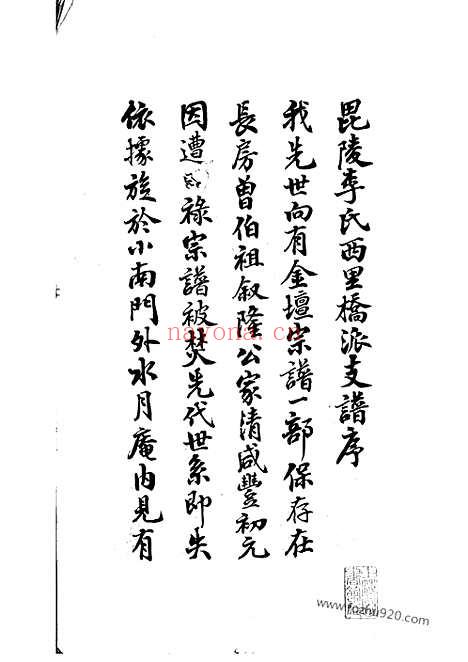 毘陵李氏西里橋派支譜序
我先世向有金壇宗譜一部保存在
長房曾伯祖叙隆公家清咸豐初元
因遭回祿宗譜被焚先代世系即失
依據旋於小南門外水月庵内見有
nayona.cn
www.fozhu920.com